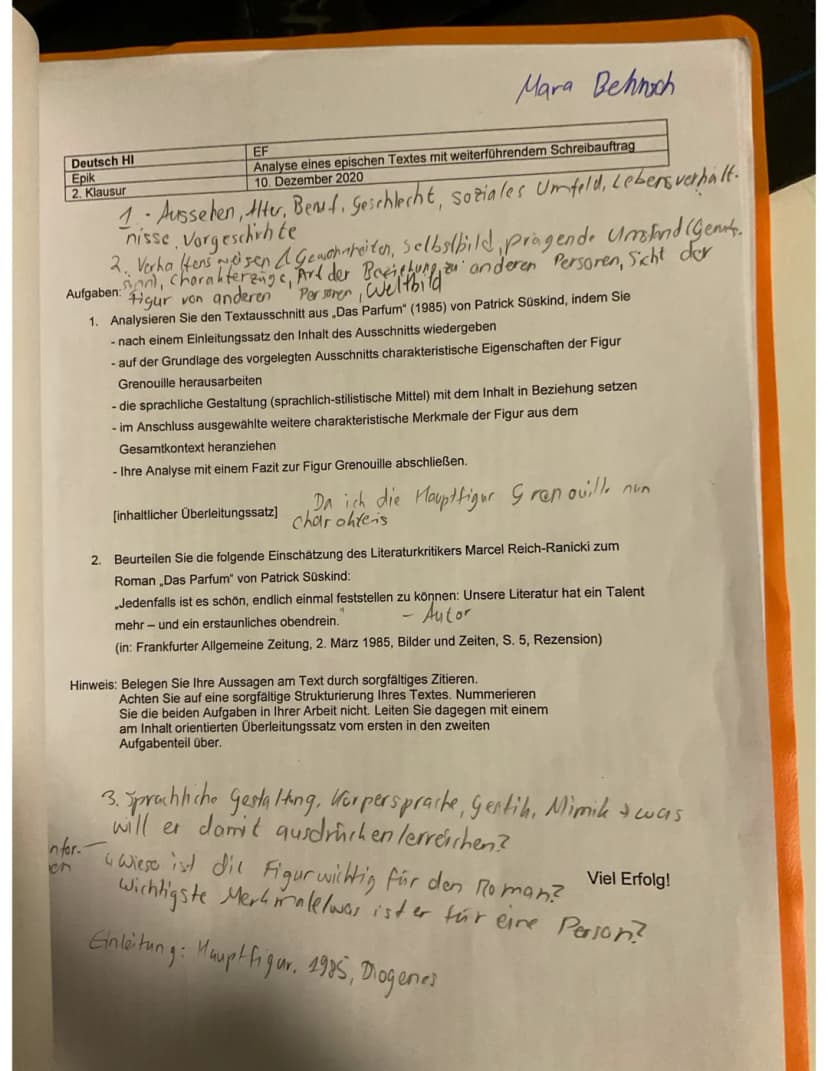 Mara Behnsch
Deutsch HI
EF
Epik
Analyse eines epischen Textes mit weiterführendem Schreibauftrag
2. Klausur
10. Dezember 2020
1. - Aussehen, Alter, Beruf, Geschlecht, soziales Umfeld, Lebensverhält-
nisse, Vorgeschichte
2. Verhaltensweisen & Gewohnheiten, Selbstbild, prägende Umstand
Charakterzüge, Art der Beziehung zu anderen Personen, Sicht der
Aufgaben: Figur von anderen Personen, Weltbild
1. Analysieren Sie den Textausschnitt aus „Das Parfum“ (1985) von Patrick Süskind, indem Sie
- nach einem Einleitungssatz den Inhalt des Ausschnitts wiedergeben
- auf der Grundlage des vorgelegten Ausschnitts charakteristische Eigenschaften der Figur
Grenouille herausarbeiten
- die sprachliche Gestaltung (sprachlich-stilistische Mittel) mit dem Inhalt in Beziehung setzen
- im Anschluss ausgewählte weitere charakteristische Merkmale der Figur aus dem
Gesamtkontext heranziehen
- Ihre Analyse mit einem Fazit zur Figur Grenouille abschließen.
[inhaltlicher Überleitungssatz] Da ich die Hauptfigur Grenouille nun
2. Beurteilen Sie die folgende Einschätzung des Literaturkritikers Marcel Reich-Ranicki zum
Roman „Das Parfum“ von Patrick Süskind:
„Jedenfalls ist es schön, endlich einmal feststellen zu können: Unsere Literatur hat ein Talent
mehr – und ein erstaunliches obendrein.“ - Autor
(in: Frankfurter Allgemeine Zeitung, 2. März 1985, Bilder und Zeiten, S. 5, Rezension)
Hinweis: Belegen Sie Ihre Aussagen am Text durch sorgfältiges Zitieren.
Achten Sie auf eine sorgfältige Strukturierung Ihres Textes. Nummerieren
Sie die beiden Aufgaben in Ihrer Arbeit nicht. Leiten Sie dagegen mit einem
am Inhalt orientierten Überleitungssatz vom ersten in den zweiten
Aufgabenteil über.
3. Sprachliche Gestaltung, Körpersprache, Gestik, Mimik → was
will er damit ausdrücken/erreichen?
↳ Wieso ist die Figur wichtig für den Roman?
Viel Erfolg!
Wichtigste Merkmale/was ist er für eine Person?
Einleitung: Hauptfigur, 1985, Diogenes